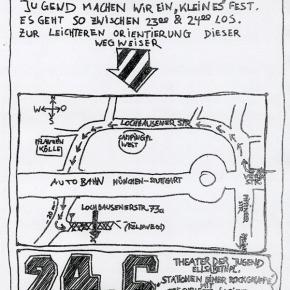 JUGEND MACHEN WIR EIN KLEINES FEST.
ES GEHT SO ZWISCHEN 23⁰⁰ & 24⁰⁰ LOS.
ZUR LEICHTEREN ORIENTIERUNG DIESER
WEGWEISER
W O
LOCHHAUSENER STR
PFLANZEN
KÖLLE
CAMPINGPL.
WEST
AUTOBAHN MÜNCHEN-STUTTGART
STR
LOCHHAUSENERSTR. 73a
(FELDWEG)
24.6.
THEATER DER JUGEND
ELISABETHPL.
STATIONEN EINER ROCKGRUPPE
MIT